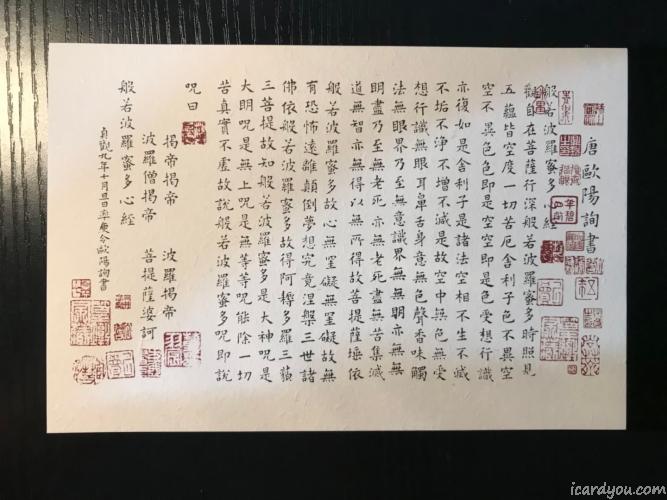 唐歐陽詢書
般若波羅蜜多心經
觀自在菩薩行深般若波羅蜜多時照見
五蘊皆空度一切苦厄舍利子色不異空
空不異色色即是空空即是色受想行識
亦復如是舍利子是諸法空相不生不滅
不垢不淨不增不減是故空中無色無受
想行識無眼耳鼻舌身意無色聲香味觸
法無眼界乃至無意識界無無明亦無無
明盡乃至無老死亦無老死盡無苦集滅
道無智亦無得以無所得故菩提薩埵依
般若波羅蜜多故心無罣礙無罣礙故無
有恐怖遠離顛倒夢想究竟涅槃三世諸
佛依般若波羅蜜多故得阿耨多羅三藐
三菩提故知般若波羅蜜多是大神呪是
大明呪是無上呪是無等等呪能除一切
苦真實不虛故說般若波羅蜜多呪即說
呪曰
揭帝揭帝 波羅揭帝
波羅僧揭帝 菩提薩婆訶
般若波羅蜜多心經
貞觀九年十月旦日率更令歐陽詢書
icardyou.com